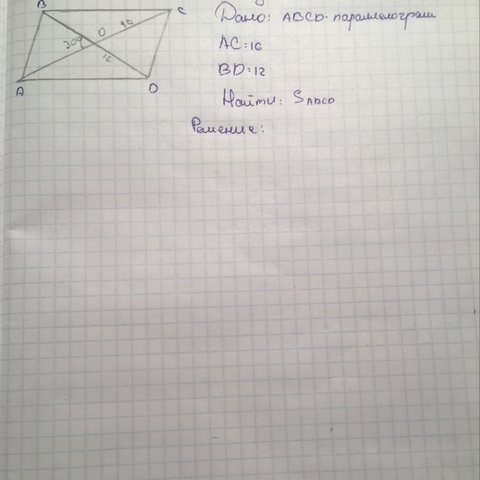 B C
30° O 16
12
A D
Дано: ABCD - параллелограм
AC=16
BD=12
Найти: SABCD
Решение: